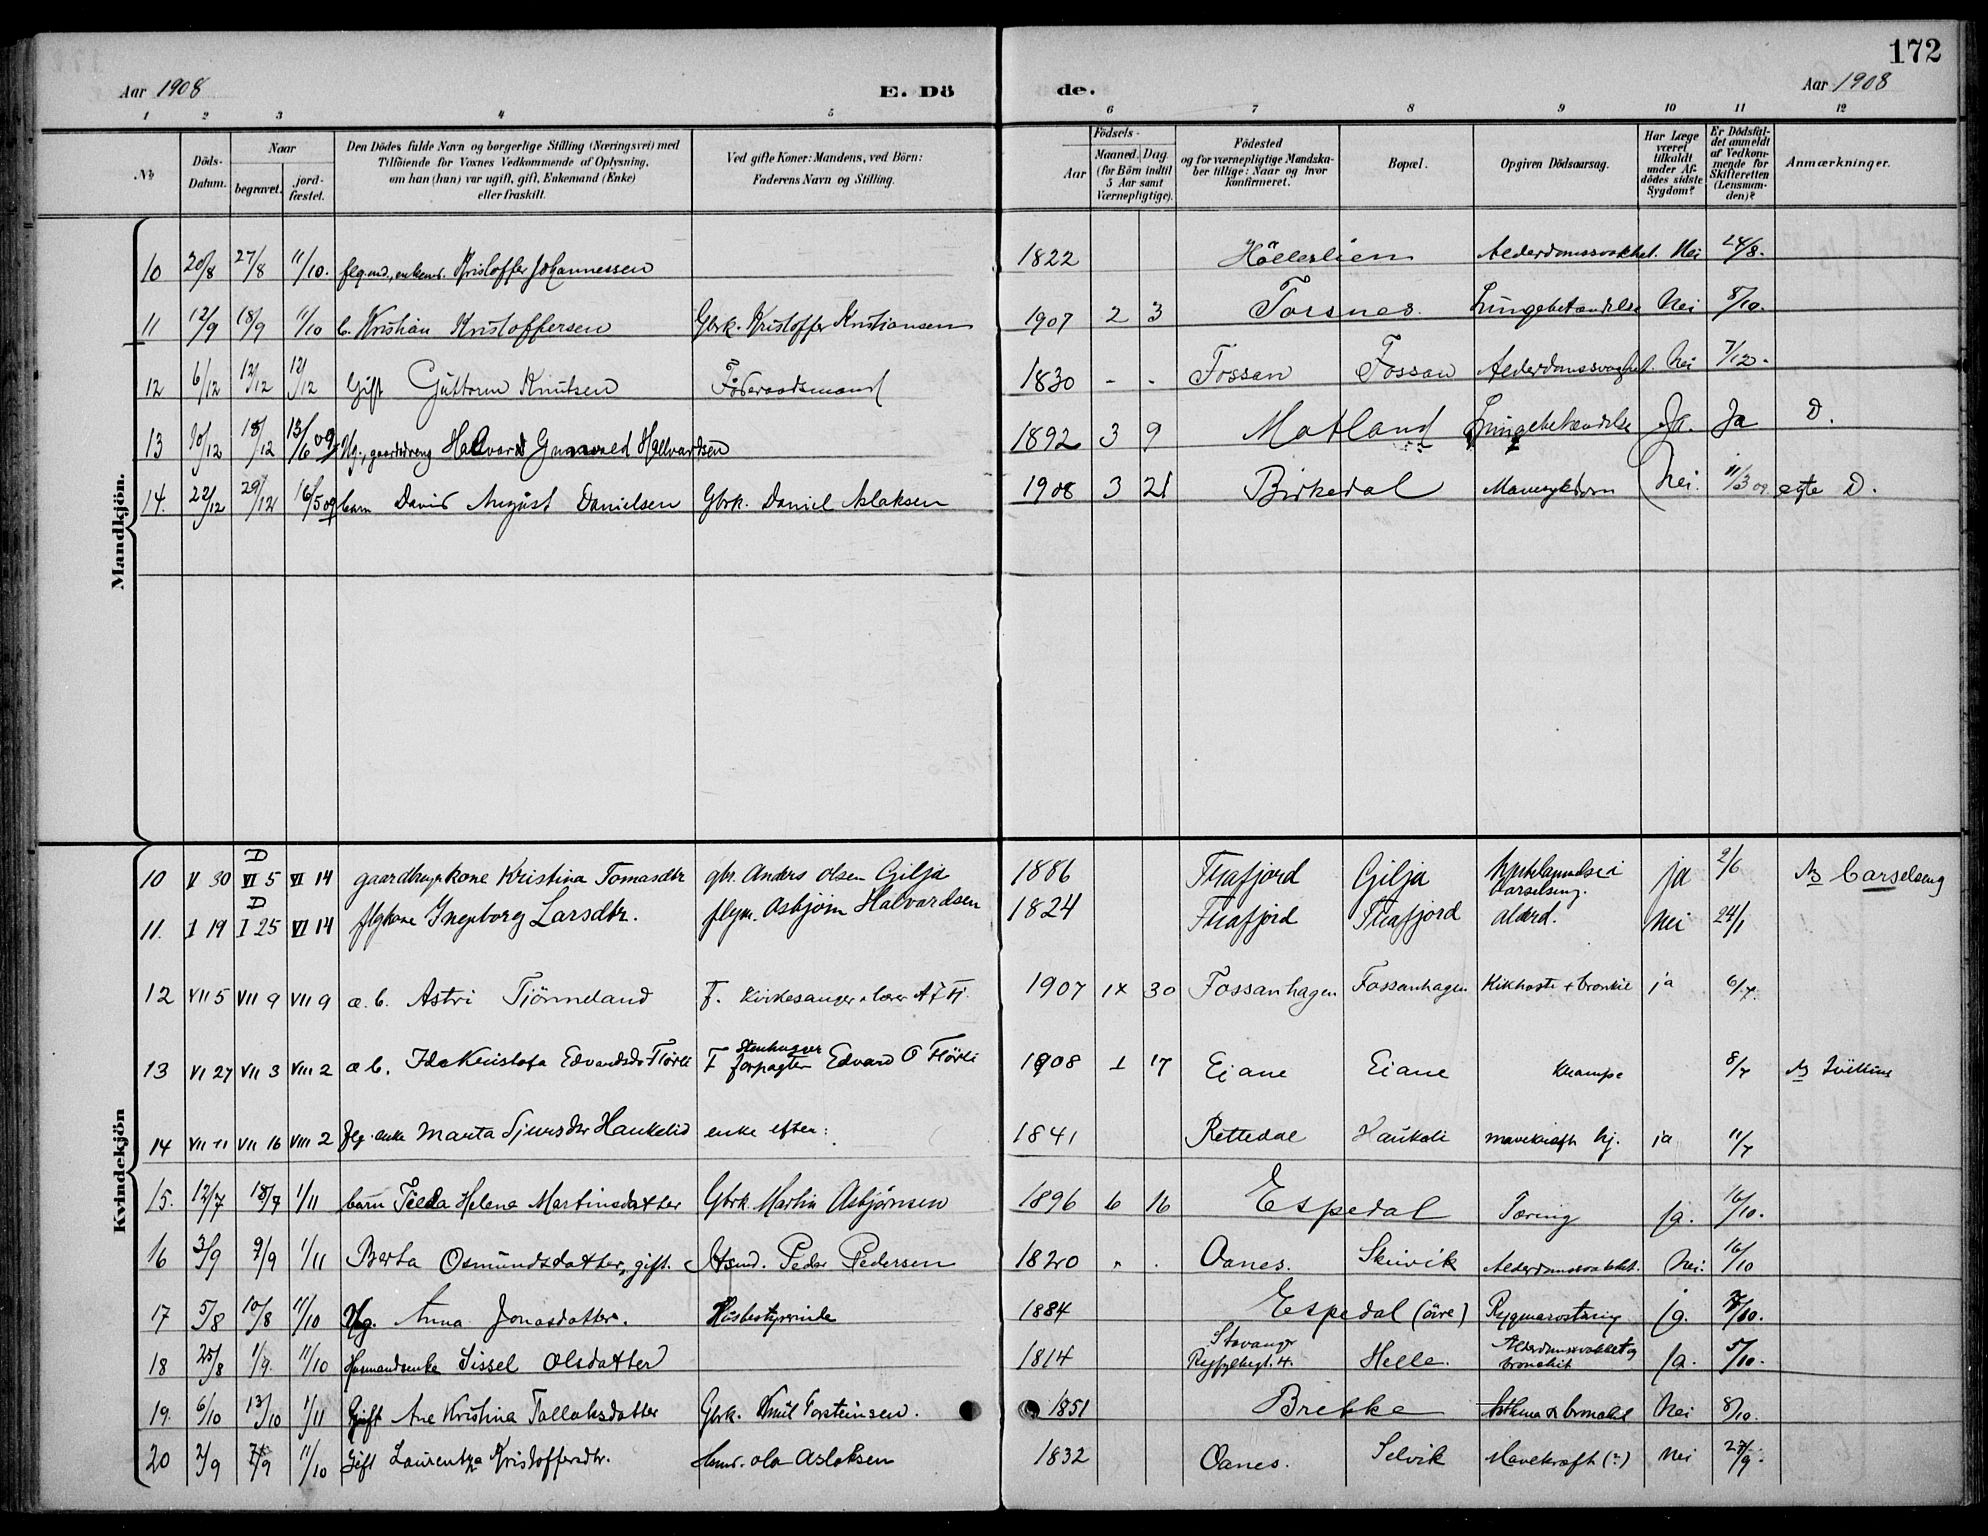 172
Aar 1908 E. Dö de. Aar 1908
1 2 3 4 5 6 7 8 9 10 11 12
No Döds-Datum. Naar begravet. jord-fæstet. Den Dödes fulde Navn og borgerlige Stilling (Næringsvei) med Tilföiende for Voxnes Vedkommende af Oplysning, om han (hun) var ugift, gift, Enkemand (Enke) eller fraskilt. Ved gifte Koner: Mandens, ved Börn: Faderens Navn og Stilling. Födsels- Aar Maaned. Dag (for Börn indtil 5 Aar samt Værnepligtige). Födested og for værnepligtige Mandska-ber tillige: Naar og hvor konfirmeret. Bopæl. Opgiven Dödsaarsag. Har Læge været tilkaldt under Af-dödes sidste Sygdom? Er Dödsfal-det anmeldt af Vedkom-mende for Skifteretten (Lensman-den)? Anmærkninger.
Mandkjön.
10 20/8 27/8 11/10. Kristoffer Johannessen 1822 Hölleslien Alderdomssvakhet. Nei 24/8.
11 12/9 18/9 11/10 b. Kristian Kristoffersen Gbrk. Kristoffer Kristiansen 1907 2 3 Forsnes. Lungebetændelse Nei 8/10.
12 6/12 12/12 12/12 Gift Guttorm Knutsen Föderaadsmand 1830 - - Fossan Fossan Alderdomssvaghet. Nei 7/12.
13 10/12 18/12 13/6 09 Ug., gaardsdreng Halvard Gunvald Hallvardsen 1892 3 9 Motland Lungebetændelse Ja. Ja D.
14. 22/12 29/12 16/5 09 barn David August Danielsen Gbrk. Daniel Aslaksen 1908 3 21 Birkedal Mavesykdom Nei. 11/3 09 egte D.
Kvindekjön
10 V 30 D VI 5 VI 14 gaardbrugkone Kristina Tomasdtr gbr. Anders Olsen Gilja 1886 Frafjord Gilja barselseng. ja 2/6 No barselseng
11. I 19 D I 25 VI 14 flgkone Ingeborg Larsdtr. flgm. Asbjørn Halvardsen 1824 Frafjord Frafjord alderd. Nei 24/1
12 VII 5 VII 9 VII 9 æ. b. Astri Tjönneland F. Kirkesanger o lærer A J Tj. 1907 IX 30 Fossanhagen Fossanhagen Kikhoste + bronkit ja 6/7.
13 VI 27 VII 3 VIII 2 æ b. Ida Kristofa Edvardsdtr Flörli F Stenhugger forpagter Edvard O Flörli 1908 I 17 Eiane Eiane Krampe 8/7 No tvilling
14 VII 11 VII 16 VIII 2 flg. enke Marta Sjursdtr Haukelid enke efter: 1841 Rettedal Haukali mavekræft hj. ja 11/7
15. 12/7 18/7 1/11 barn Tilda Helene Martinsdatter Gbrk. Martin Asbjørnsen 1896 6 16 Espedal Tæring ja. 16/10.
16 3/9 9/9 1/11 Berta Osmundsdatter, gift. Peder Pedersen 1820 " . Oanes. Skivik Alderdomssvakhet. Nei. 16/10
17 5/8 10/8 11/10 Ug. Anna Jonasdatter. Husbestyrerinde 1884 Espedal (øvre) Rygmarvstæring ja. /10.
18 25/8 1/9. 11/10 Husmandsenke Sissel Olsdatter 1814 Stavanger Helle. Alderdomssvakhet og bronchit ja. 5/10.
19. 6/10 13/10 1/11 Gift Ane Kristina Tollaksdatter Gbrk. Knut Torsteinsen. 1851 Brekke Asthma & bronchit Nei 8/10.
20 2/9 7/9 11/10 Gift Laurentza Kristoffersdtr. Husm. Ola Aslaksen 1832 Oanes. Selvik Mavekræft (?) Nei 27/9.